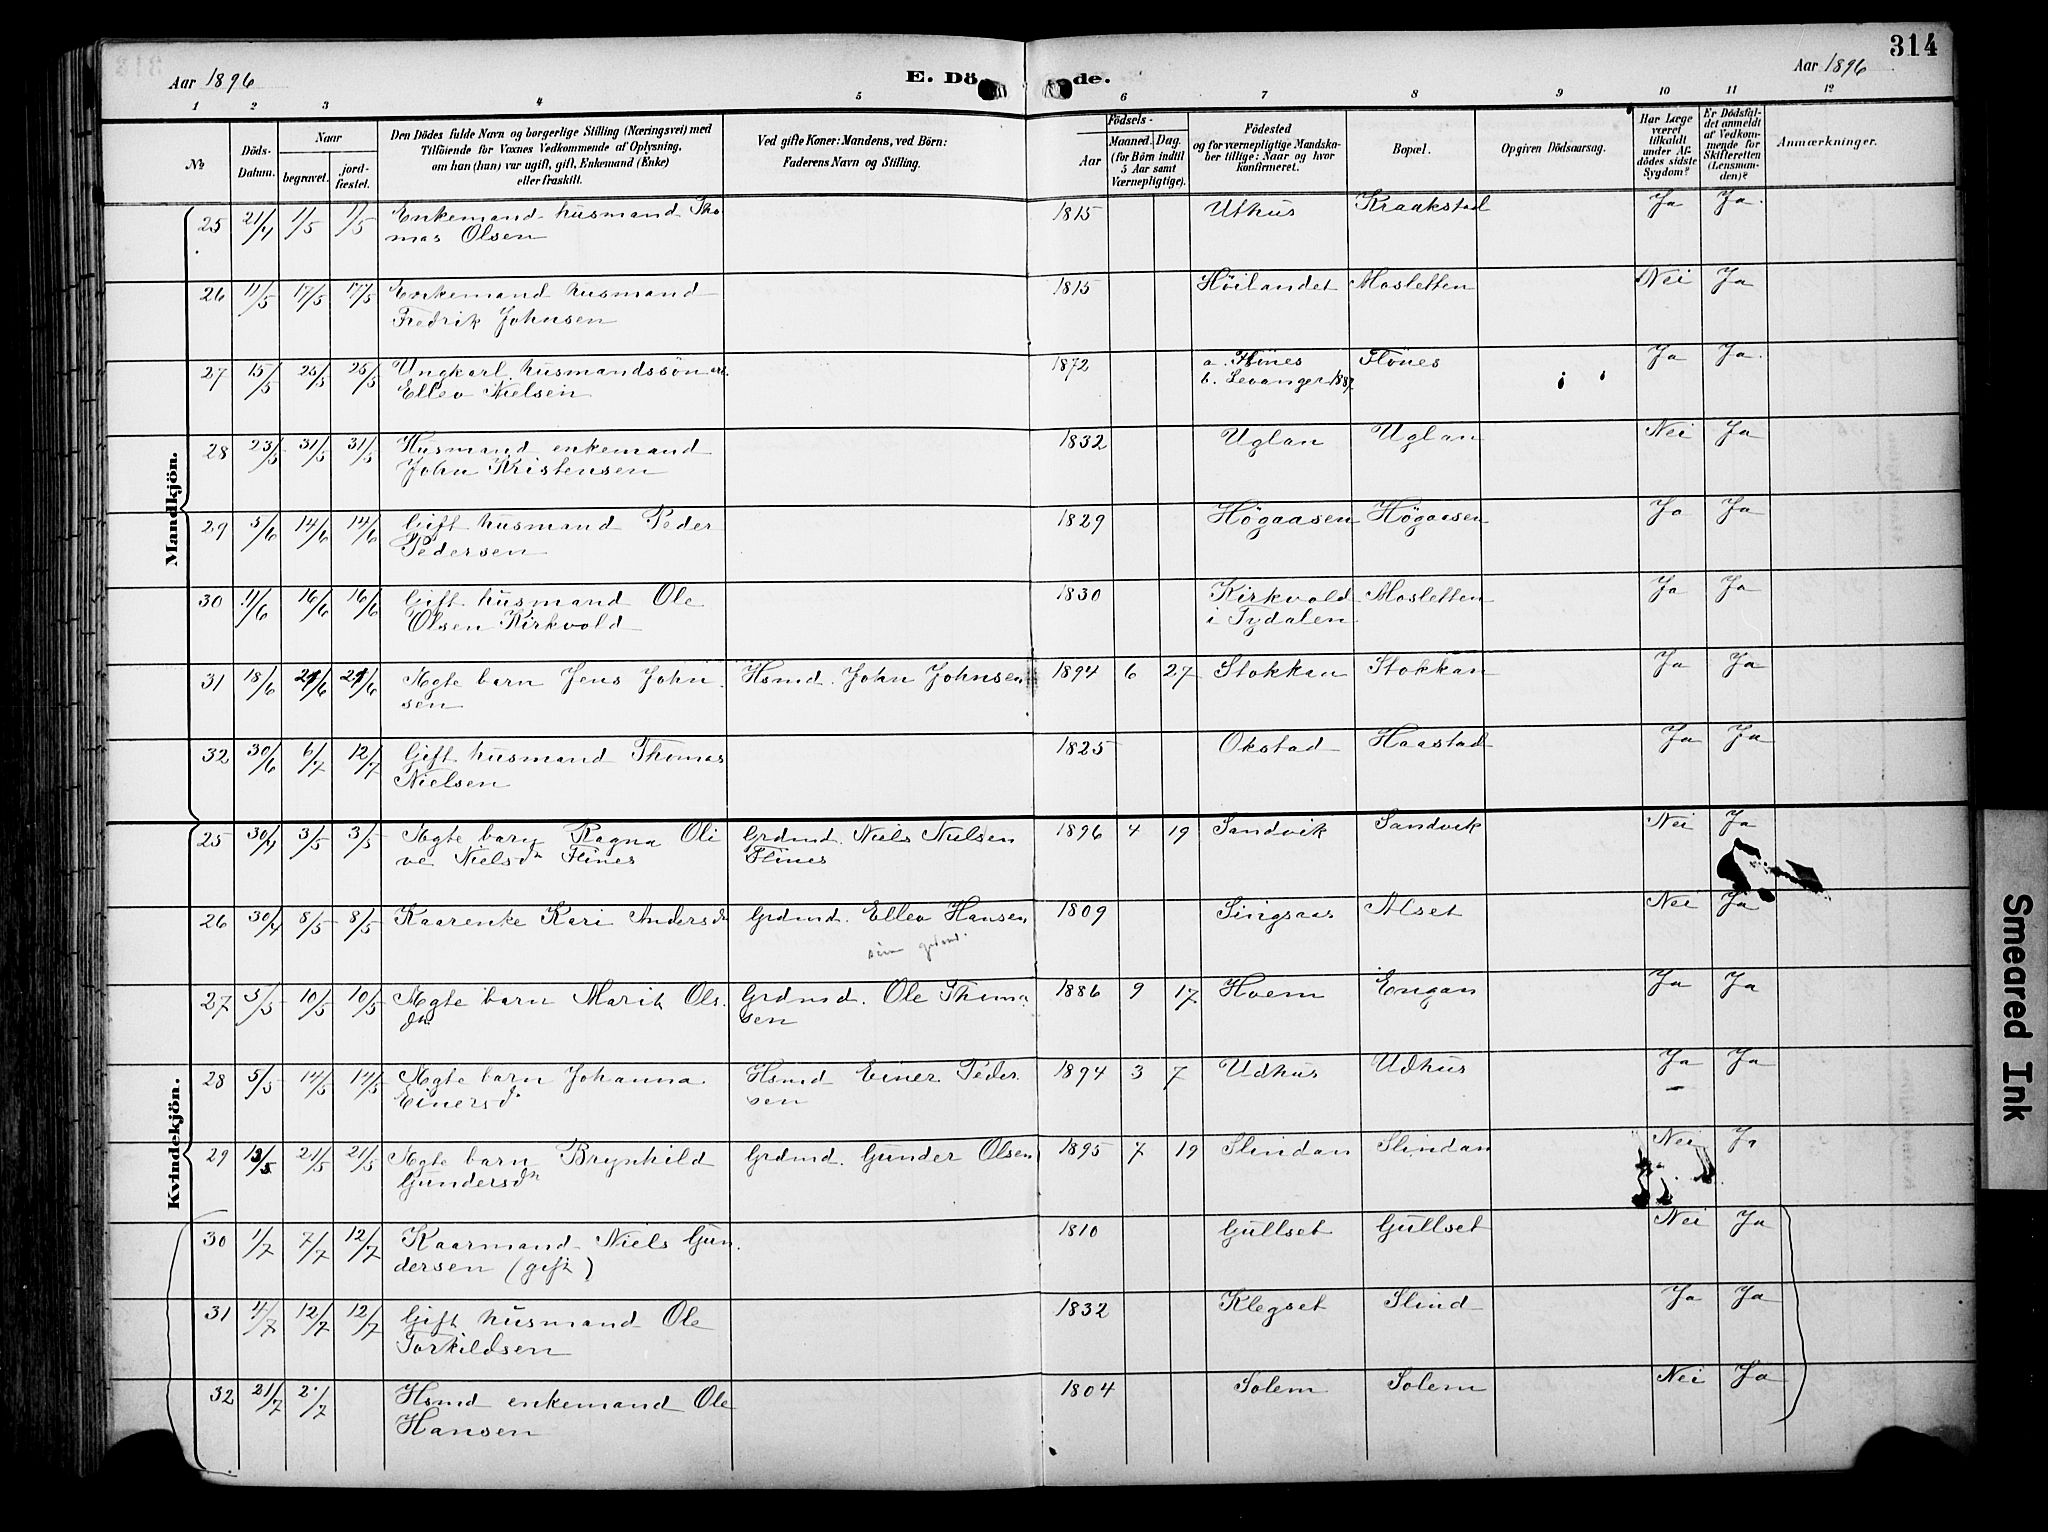 314
Aar 1896
E. Dö de.
Aar 1896
1 2 3 4 5 6 7 8 9 10 11 12
No
Döds-Datum.
Naar
begravet.
jord-fæstet.
Den Dödes fulde Navn og borgerlige Stilling (Næringsvei) med
Tilföiende for Voxnes Vedkommende af Oplysning,
om han (han) var ugift, gift, Enkemand (Enke)
eller fraskilt.
Ved gifte Koner: Mandens, ved Börn:
Faderens Navn og Stilling.
Födsels-
Aar
Maaned. Dag.
(for Börn indtil
5 Aar samt
Værnepligtige).
Födested
og for værnepligtige Mandska-
ber tillige: Naar og hvor
konfirmeret.
Bopæl.
Opgiven Dödsaarsag.
Har Læge
været
tilkaldt
under Af-
dödes sidste
Sygdom?
Er Dödsfal-
det anmeldt
af Vedkom-
mende for
Skifteretten
(Lensman-
den)?
Anmærkninger.
Mandkjön.
25 21/4 1/5 1/5 Enkemand husmand Tho 1815 Uthus Kraakstad Ja Ja
mas Olsen
26 11/5 17/5 17/5 Enkemand husmand 1815 Höilandet Mosletten Nei Ja
Fredrik Johnsen
27 15/5 25/5 25/5 Ungkarl husmandssön 1872 a. Flönes Flönes Ja Ja
Ellev Nielsen b. Levanger 1887
28 23/5 31/5 31/5 Husmand enkemand 1832 Uglan Uglan Nei Ja
John Kristensen
29 5/6 14/6 14/6 Gift husmand Peder 1829 Högaasen Högaasen Ja Ja
Pedersen
30 11/6 16/6 16/6 Gift husmand Ole 1830 Kirkvold Mosletten Ja Ja
Olsen Kirkvold i Tydalen
31 18/6 29/6 29/6 Ægte barn Jens John Hsmd. John Johnsen 1894 6 27 Stokkan Stokkan Ja Ja
sen
32 30/6 6/7 12/7 Gift husmand Thomas 1825 Okstad Haastad Ja Ja
Nielsen
Kvindekjön.
25 30/4 3/5 3/5 Ægte barn Ragna Oli Grdmd. Niels Nielsen 1896 4 19 Sandvik Sandvik Nei Ja
ve Nielsdr Flines Flines
26 30/4 8/5 8/5 Kaarenke Kari Andersdr Grdmd. Ellev Hansen 1809 Singsaas Alset Nei Ja
27 5/5 10/5 10/5 Ægte barn Marit Ols Grdmd. Ole Thoma 1886 9 17 Hoem Engan Ja Ja
dr. sen
28 5/5 14/5 14/5 Ægte barn Johanna Hsmd Einer Peder 1894 3 7 Udhus Udhus Ja Ja
Einersd. sen
29 13/5 21/5 21/5 Ægte barn Brynhild Grdmd. Gunder Olsen 1895 7 19 Slindan Slindan Nei Ja
Gundersdr
30 1/7 7/7 12/7 Kaarmand Niels Gun 1810 Gullset Gullset Nei Ja
dersen (gift)
31 4/7 12/7 12/7 Gift husmand Ole 1832 Klegset Slind Ja Ja
Torkildsen
32 21/7 Hsmd enkemand Ole 1804 Solem Solem Nei Ja
Hansen
Smeared Ink